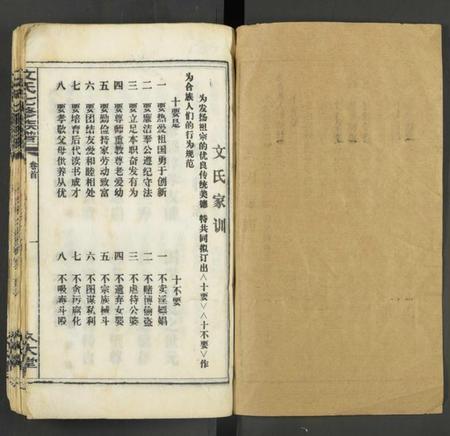 文氏家训
为发扬祖宗的优良传统美德 特共同拟订出〈十要〉〈十不要〉作
为合族人们的行为规范
十要是
一 要热爱祖国勇于创新
二 要廉洁奉公遵纪守法
三 要立足本职奋发有为
四 要尊师重教尊老爱幼
五 要勤俭持家劳动致富
六 要团结友爱和睦相处
七 要培育后代读书成才
八 要孝敬父母供养从优
十不要
一 不卖淫嫖娼
二 不赌博偷盗
三 不虐待公婆
四 不遗弃女婴
五 不宗族械斗
六 不图谋私利
七 不贪污腐化
八 不吸毒斗殴
文氏七修族谱
卷首
一